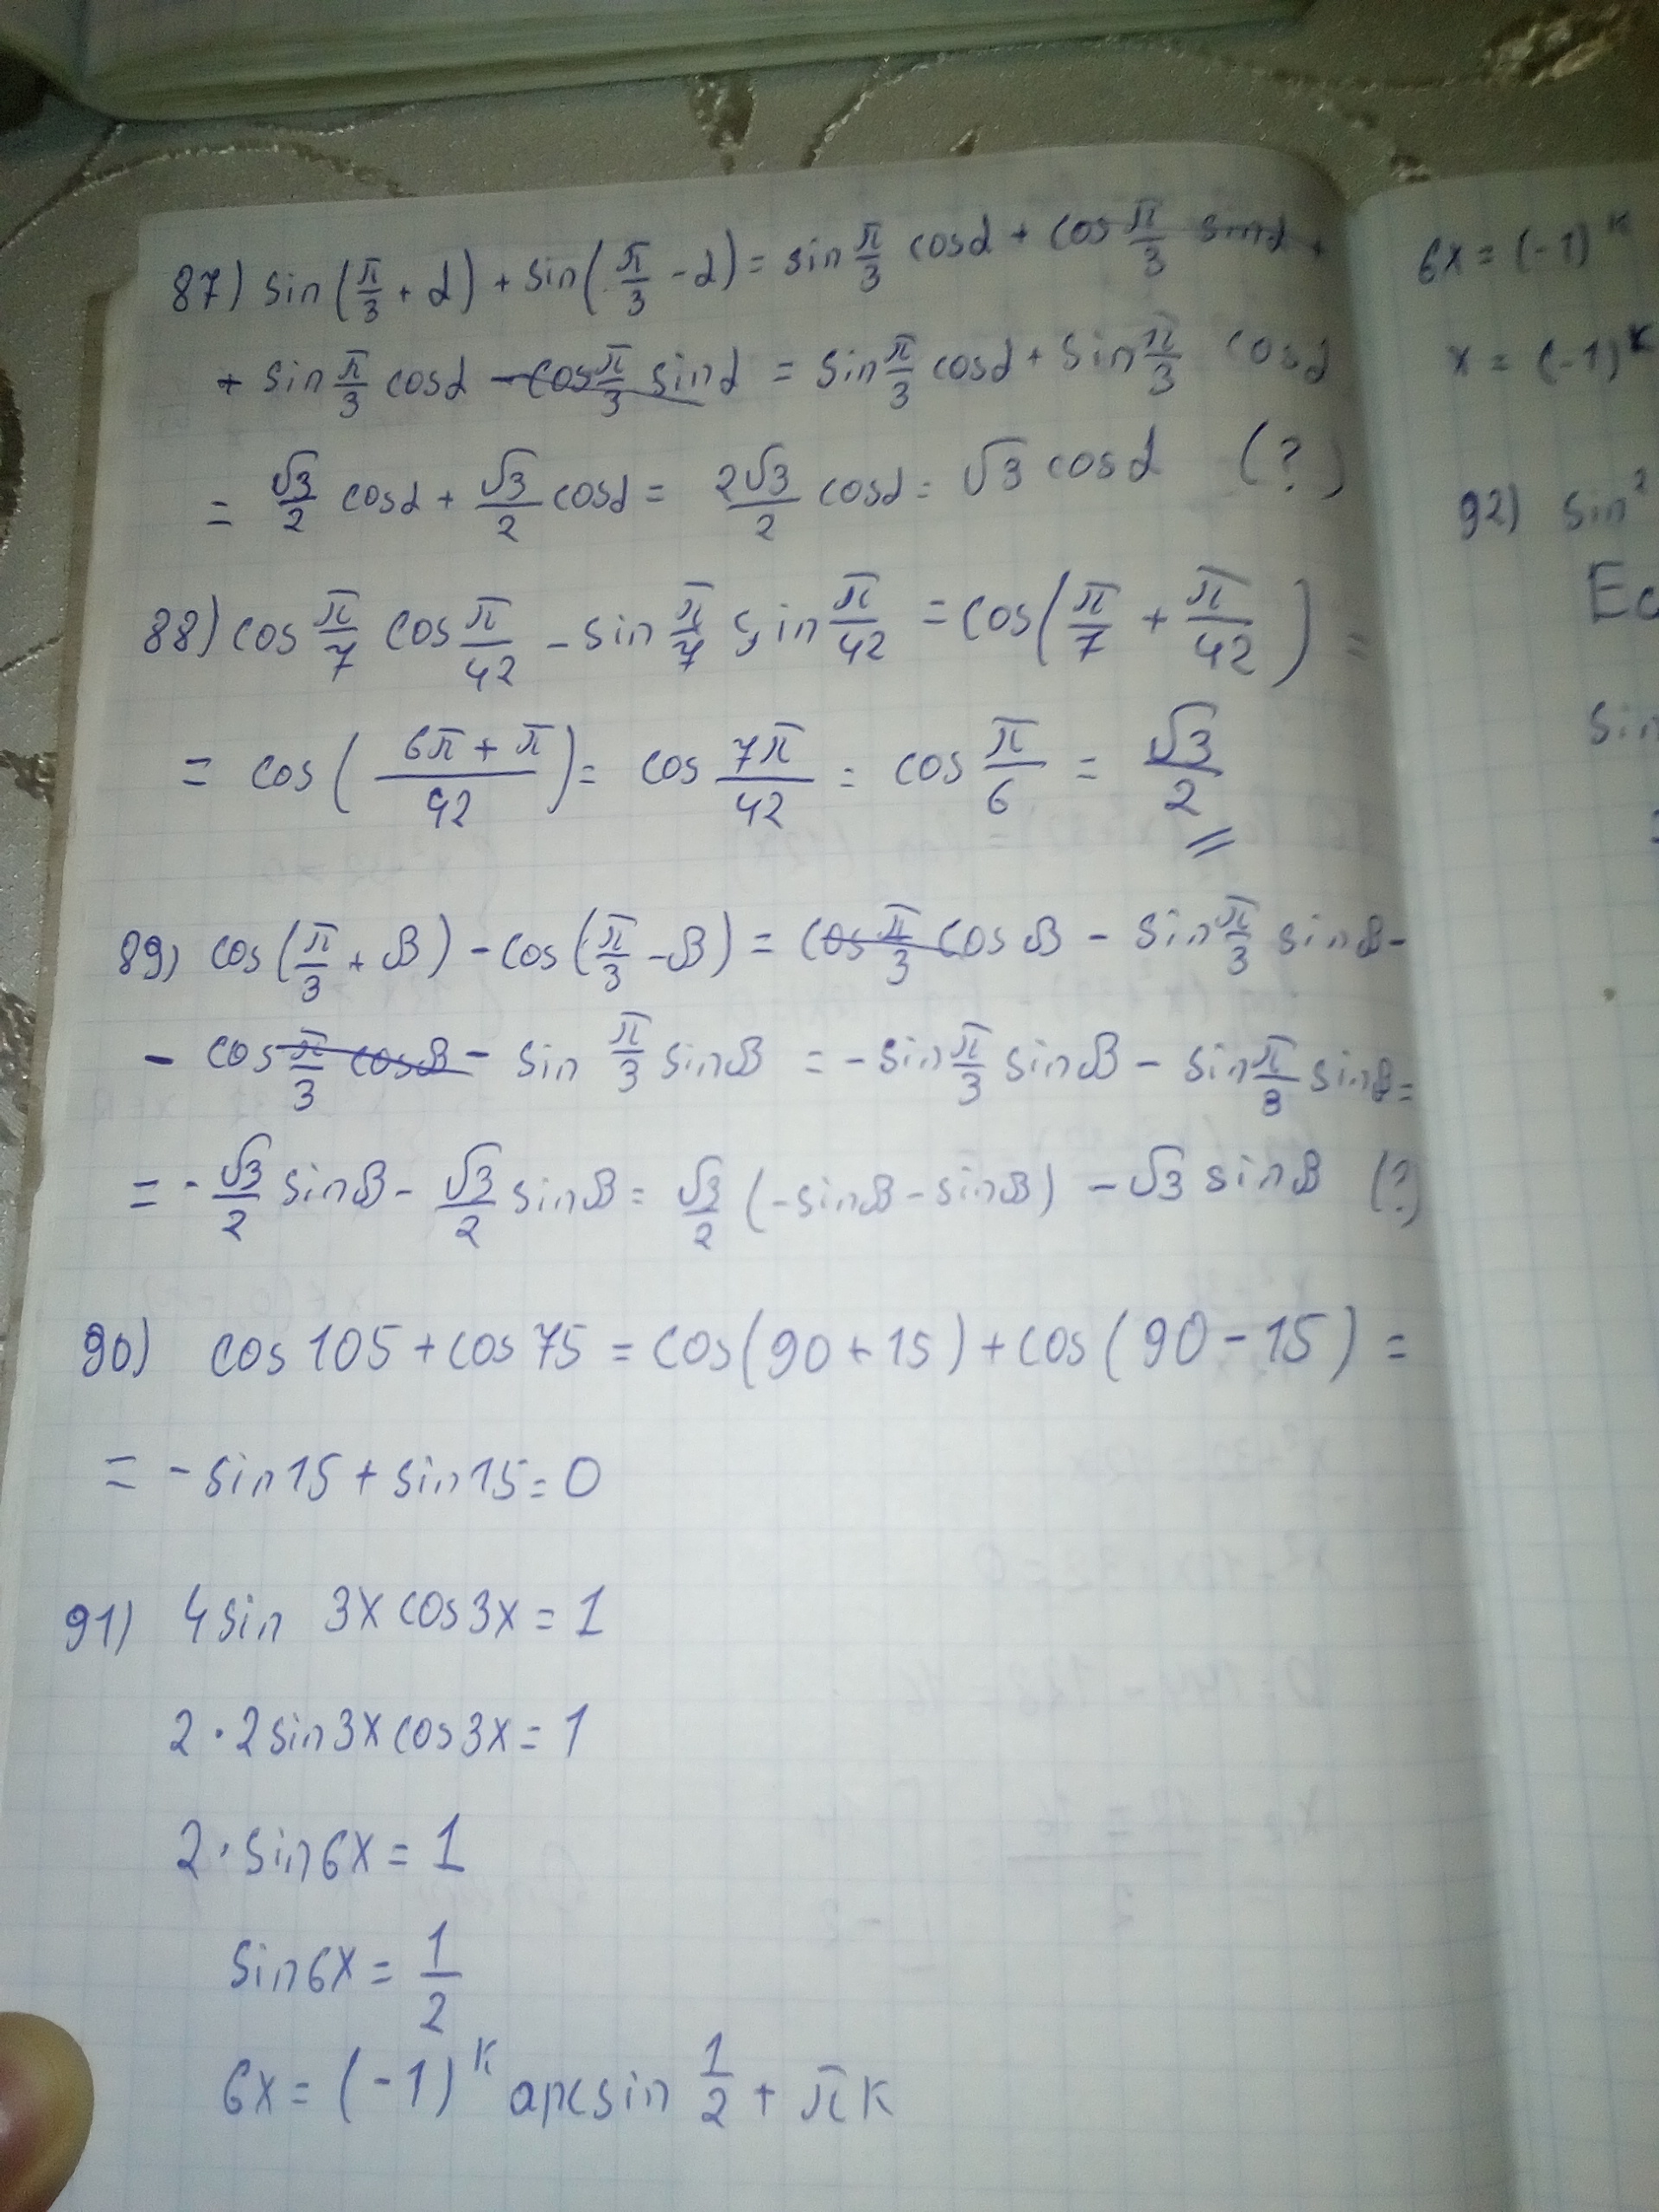 87) sin(π/3 + α) + sin(π/3 - α) = sin π/3 cosα + cos π/3 sinα +
+ sin π/3 cosα - cos π/3 sinα = sin π/3 cosα + sin π/3 cosα
= √3/2 cosα + √3/2 cosα = 2√3/2 cosα = √3 cosα (?)
88) cos π/7 cos π/42 - sin π/7 sin π/42 = cos(π/7 + π/42) =
= cos(6π + π/42) = cos 7π/42 = cos π/6 = √3/2
89) cos(π/3 + β) - cos(π/3 - β) = cos π/3 cosβ - sin π/3 sinβ -
- cos π/3 cosβ - sin π/3 sinβ = - sin π/3 sinβ - sin π/3 sinβ =
= - √3/2 sinβ - √3/2 sinβ = √3/2 (-sinβ - sinβ) - √3 sinβ (?)
90) cos 105 + cos 75 = cos(90 + 15) + cos(90 - 15) =
= - sin15 + sin15 = 0
91) 4sin 3x cos3x = 1
2 · 2sin3x cos3x = 1
2 · sin6x = 1
sin6x = 1/2
6x = (-1)^к arcsin 1/2 + πк
6x = (-1)^к
x = (-1)^к
92) sin²
Ес
sin